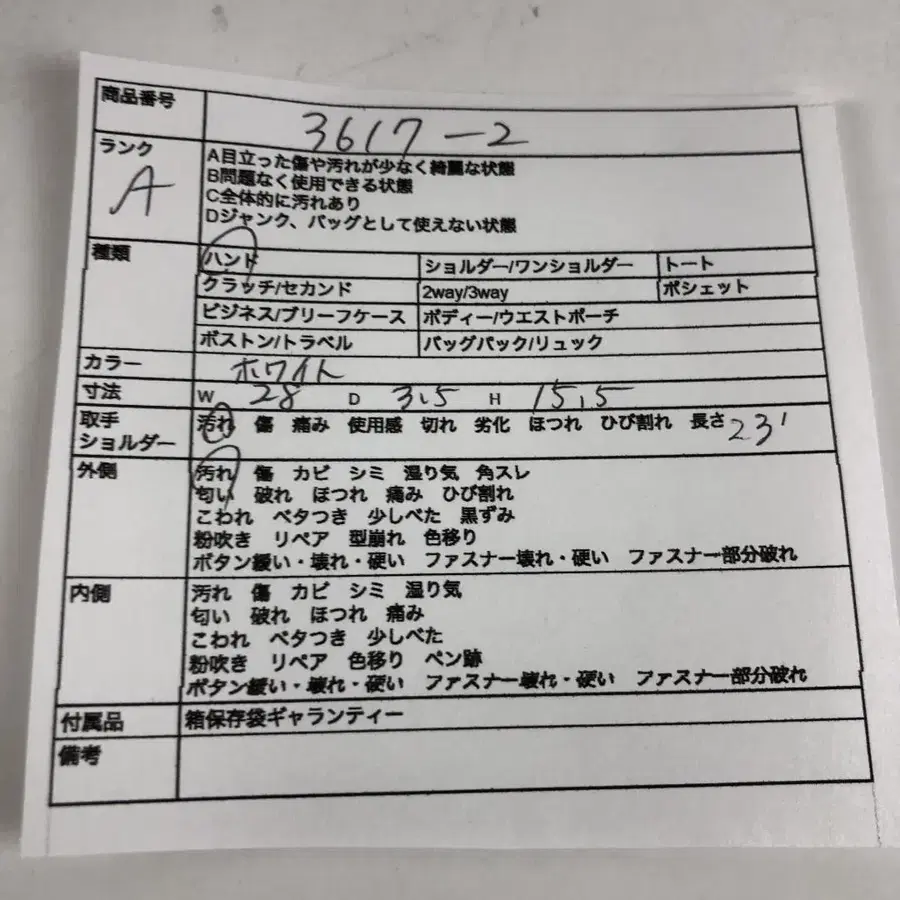 商品番号 3617-2
ランク A
A目立った傷や汚れが少なく綺麗な状態
B問題なく使用できる状態
C全体的に汚れあり
Dジャンク、バッグとして使えない状態
種類 ハンド ショルダー/ワンショルダー トート
クラッチ/セカンド 2way/3way ポシェット
ビジネス/ブリーフケース ボディー/ウエストポーチ
ボストン/トラベル バッグパック/リュック
カラー ホワイト
寸法 W 28 D 3.5 H 15.5
取手 汚れ 傷 痛み 使用感 切れ 劣化 ほつれ ひび割れ 長さ 23
ショルダー
外側 汚れ 傷 カビ シミ 湿り気 角スレ
匂い 破れ ほつれ 痛み ひび割れ
こわれ ベタつき 少しべた 黒ずみ
粉吹き リペア 型崩れ 色移り
ボタン緩い・壊れ・硬い ファスナー壊れ・硬い ファスナー部分破れ
内側 汚れ 傷 カビ シミ 湿り気
匂い 破れ ほつれ 痛み
こわれ ベタつき 少しべた
粉吹き リペア 色移り ペン跡
ボタン緩い・壊れ・硬い ファスナー壊れ・硬い ファスナー部分破れ
付属品 箱保存袋ギャランティー
備考